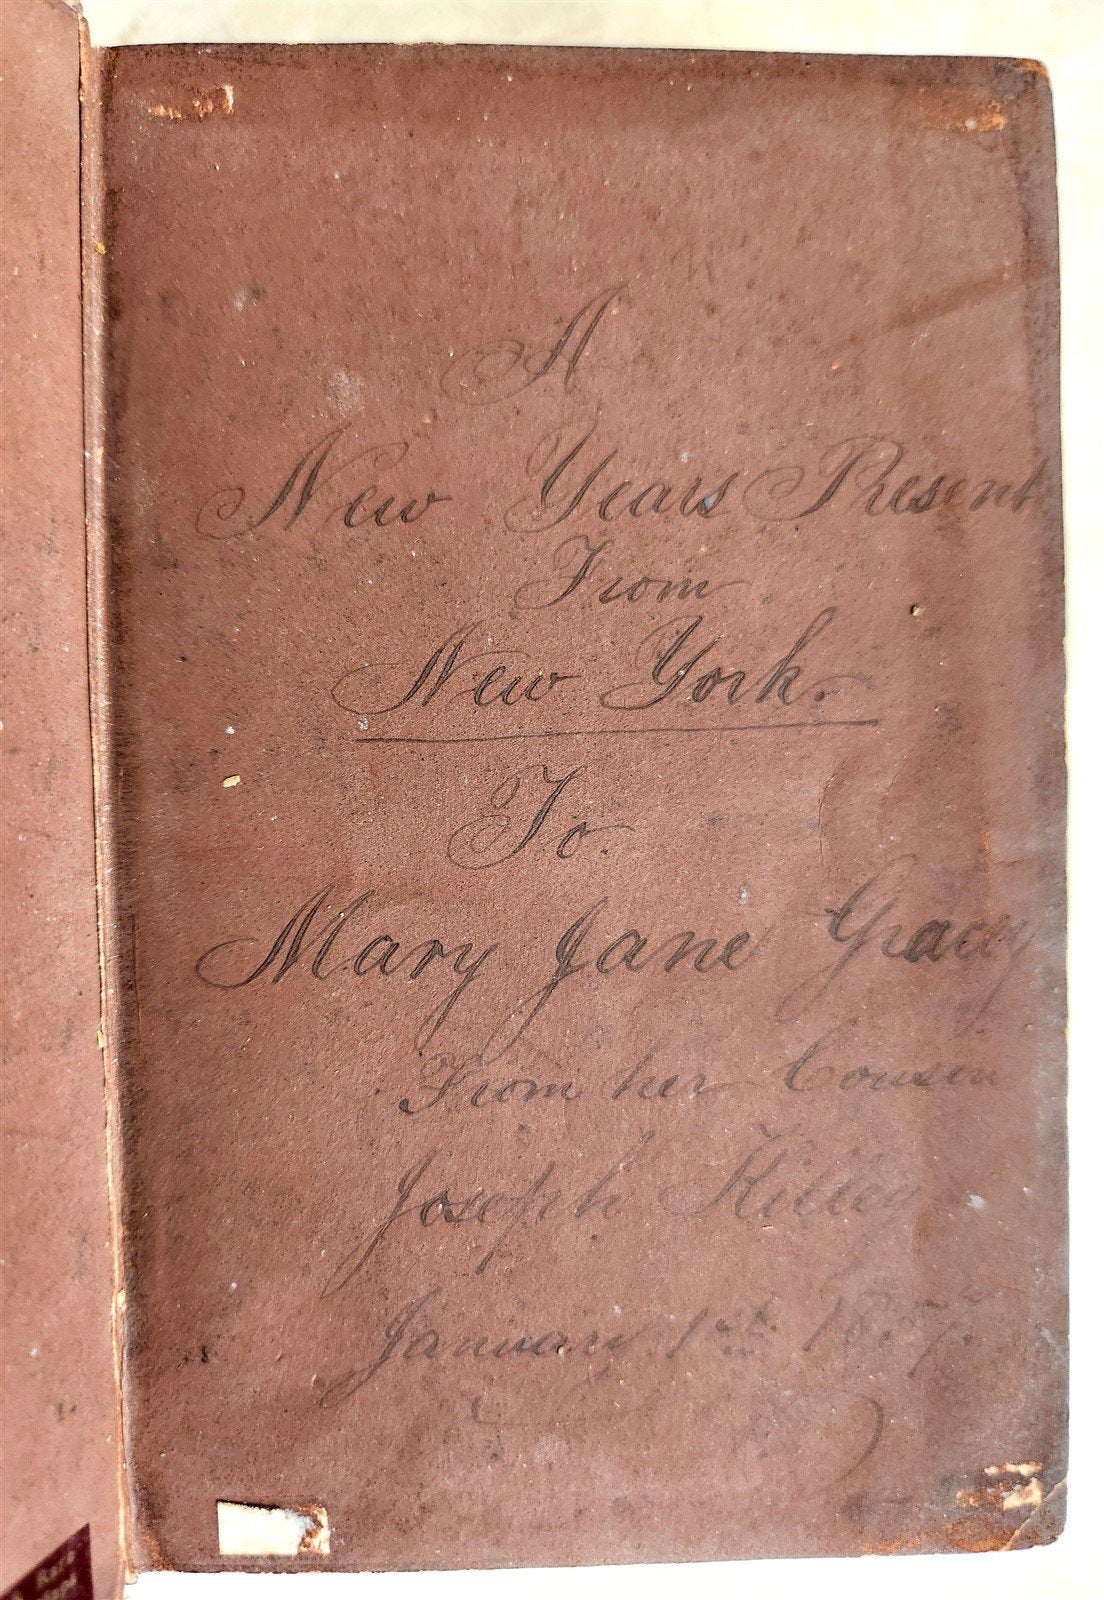 A
New Years Present
From
New York.
To.
Mary Jane Grady
From her Cousin
Joseph
January 1st 1857